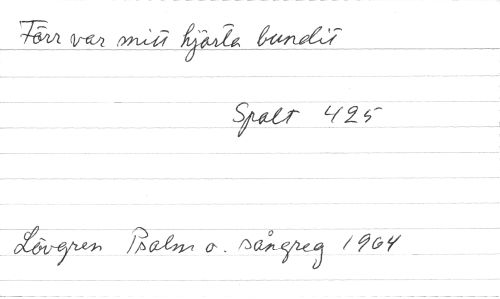 Förr var mitt hjärta bundit
Spalt 425
Lövgren Psalm o. sångreg 1964